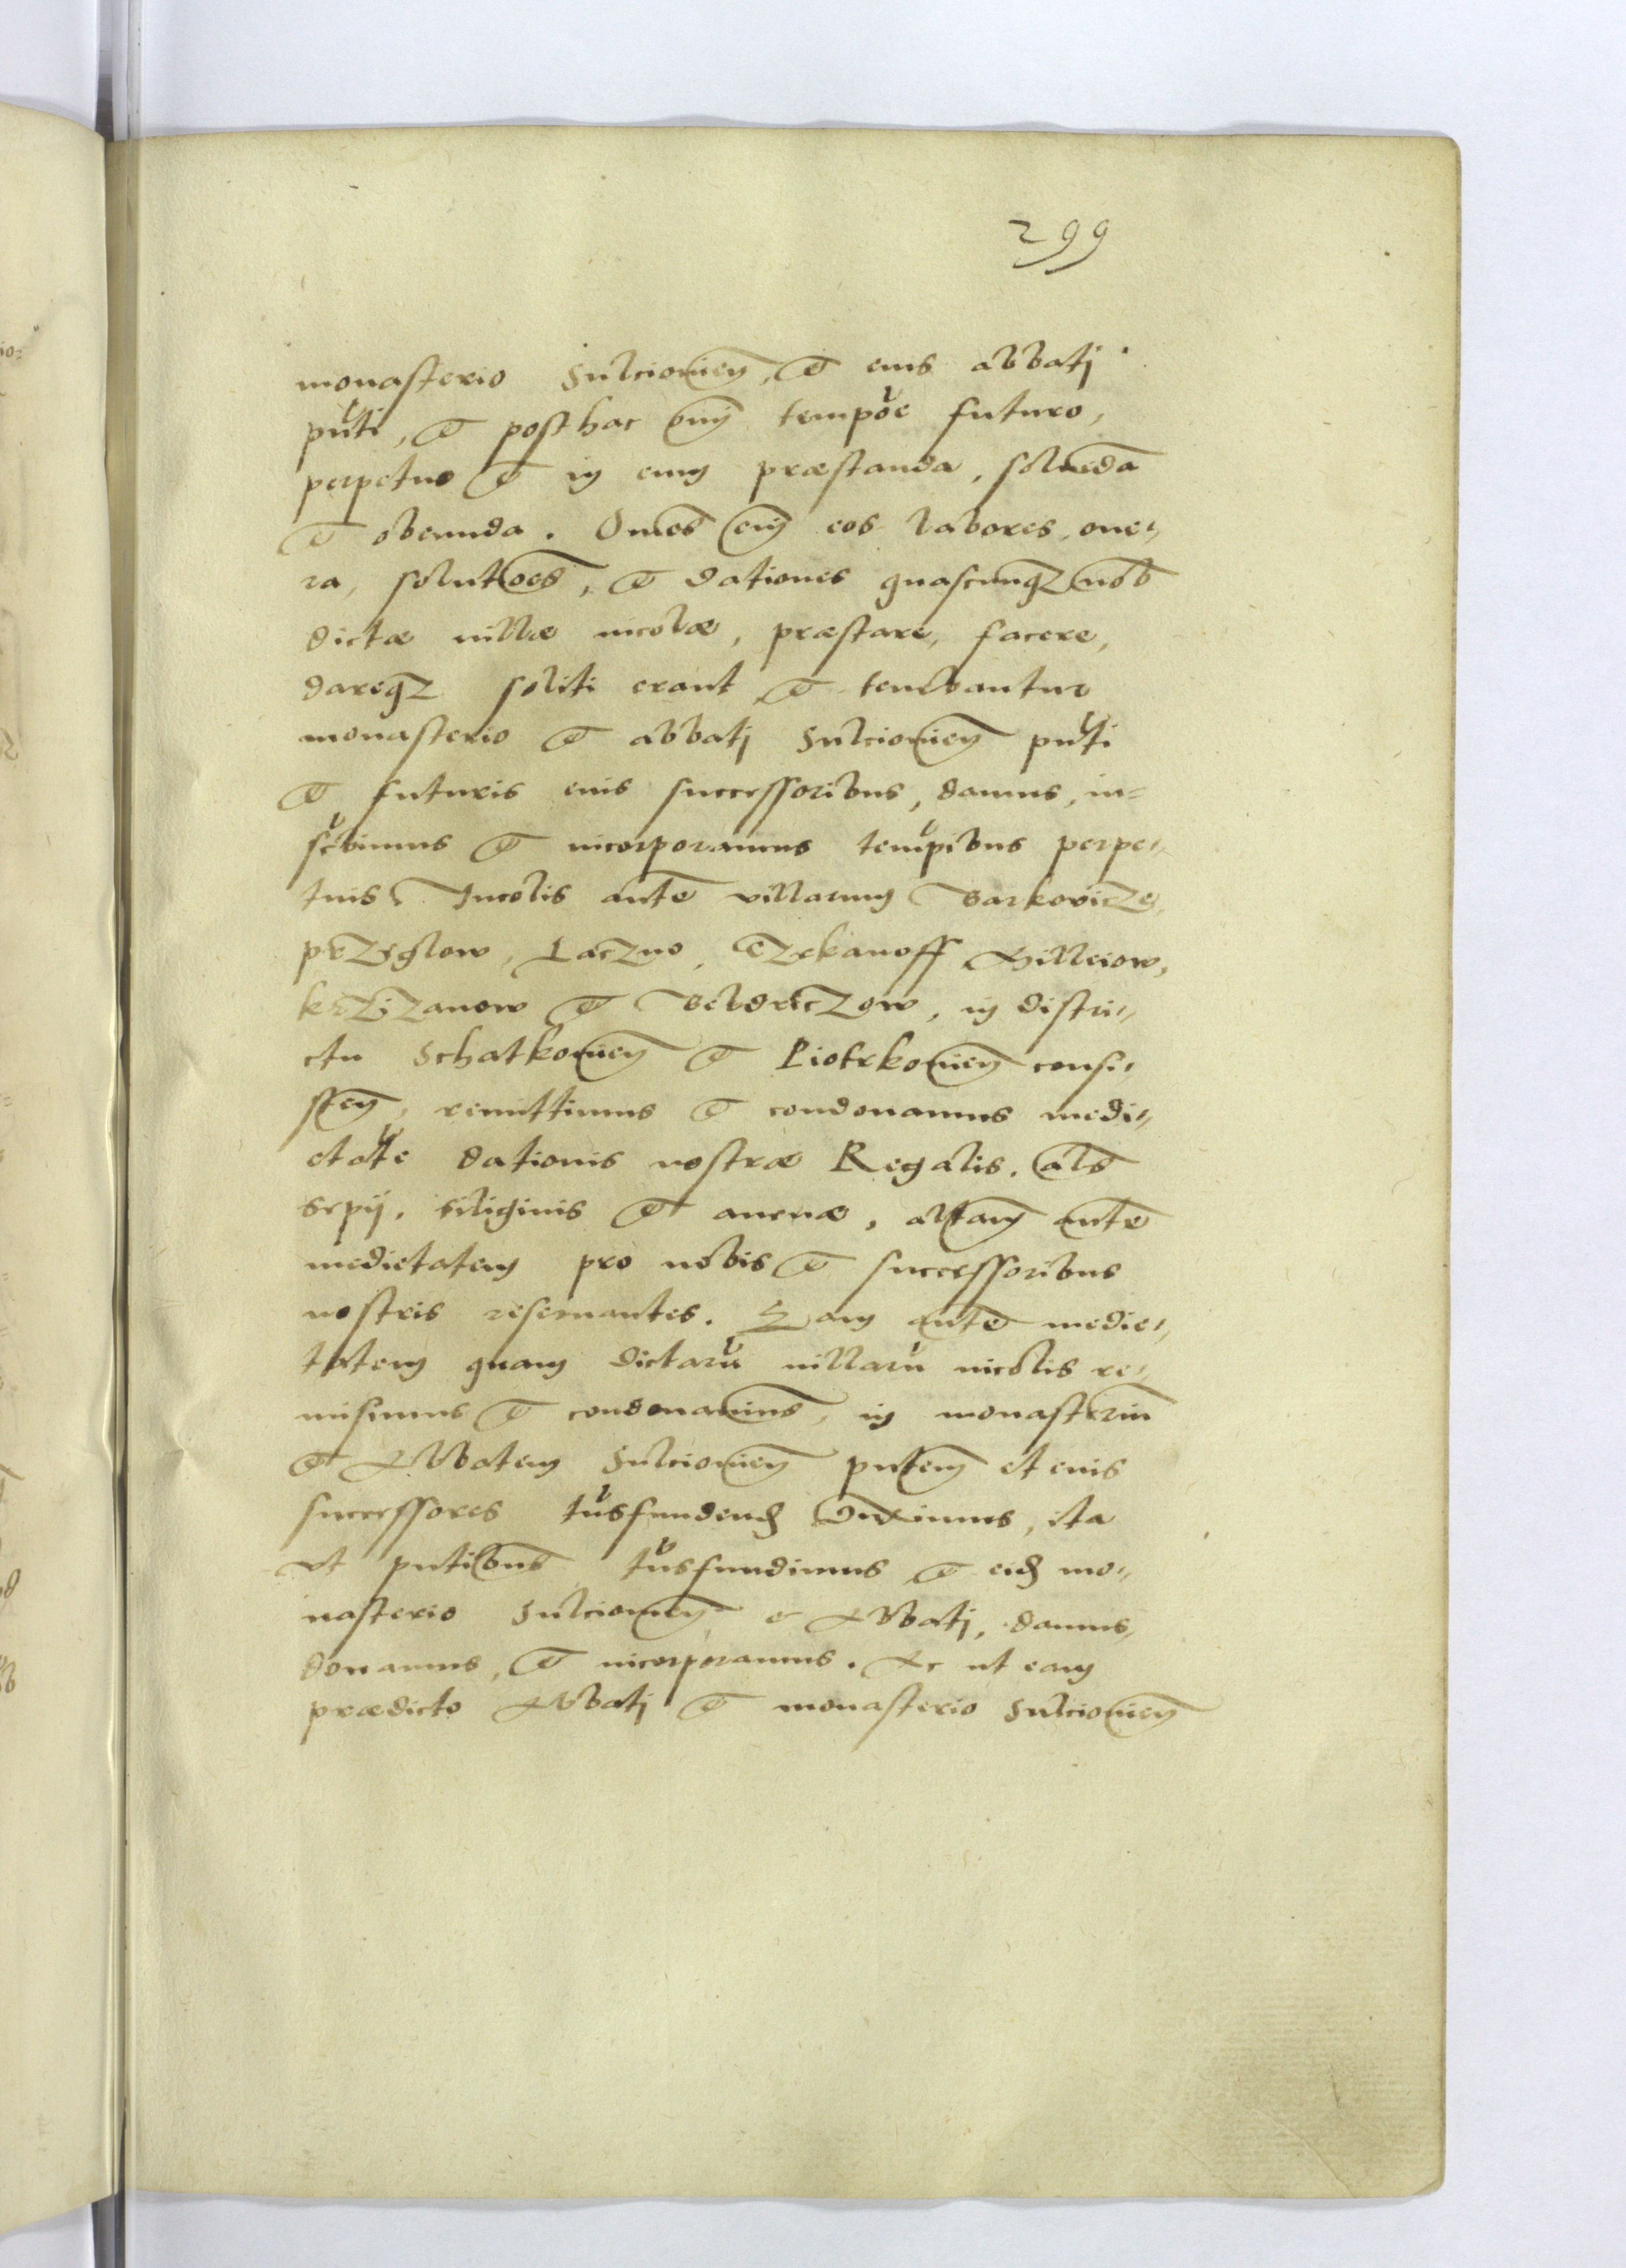 299
monasterio Sulciovien, et eius abbatj
pñti, et posthac omj tempore futuro,
perpetuo et in eum præstanda, soluēda
et obeunda. Omēs em eos labores, one,,
ra, solutoēs, et dationes quascunqz nob
dictæ uillæ incolæ, præstare, facere,
dareqz soliti erant et tenebantur
monasterio et abbatj Sulciovien pñti
et futuris eius successoribus, damus, in=
scribimus et incorporamus tempibus perpe,,
tuis. Incolis autē villarum Barkovicze,
przyglow, Lączno, Czekanoff Billciow,
krzizanow et Beldrczow, in distri,,
ctu Schatkovien et Piotrkovien consi,,
sten, remittimus et condonamus medi,,
etate dationis nostræ Regalis. als
Sepij, siliginis et auenæ, altam autē
medietatem pro nobis et successoribus
nostris reseruantes. Eam autē medie,,
tatem quam dictarū uillarū incolis re,,
misimus et condonauimus, in monasteriū
et Abbatem Sulciovien pntem et eius
successores trāsfundend duximus, ita
vt pntibus trāsfundimus et eid mo,,
nasterio Sulciovien et Abbatj, damus,
donamus, et incorporamus. Ac ut eam
prædicto Abbatj et monasterio Sulciovien